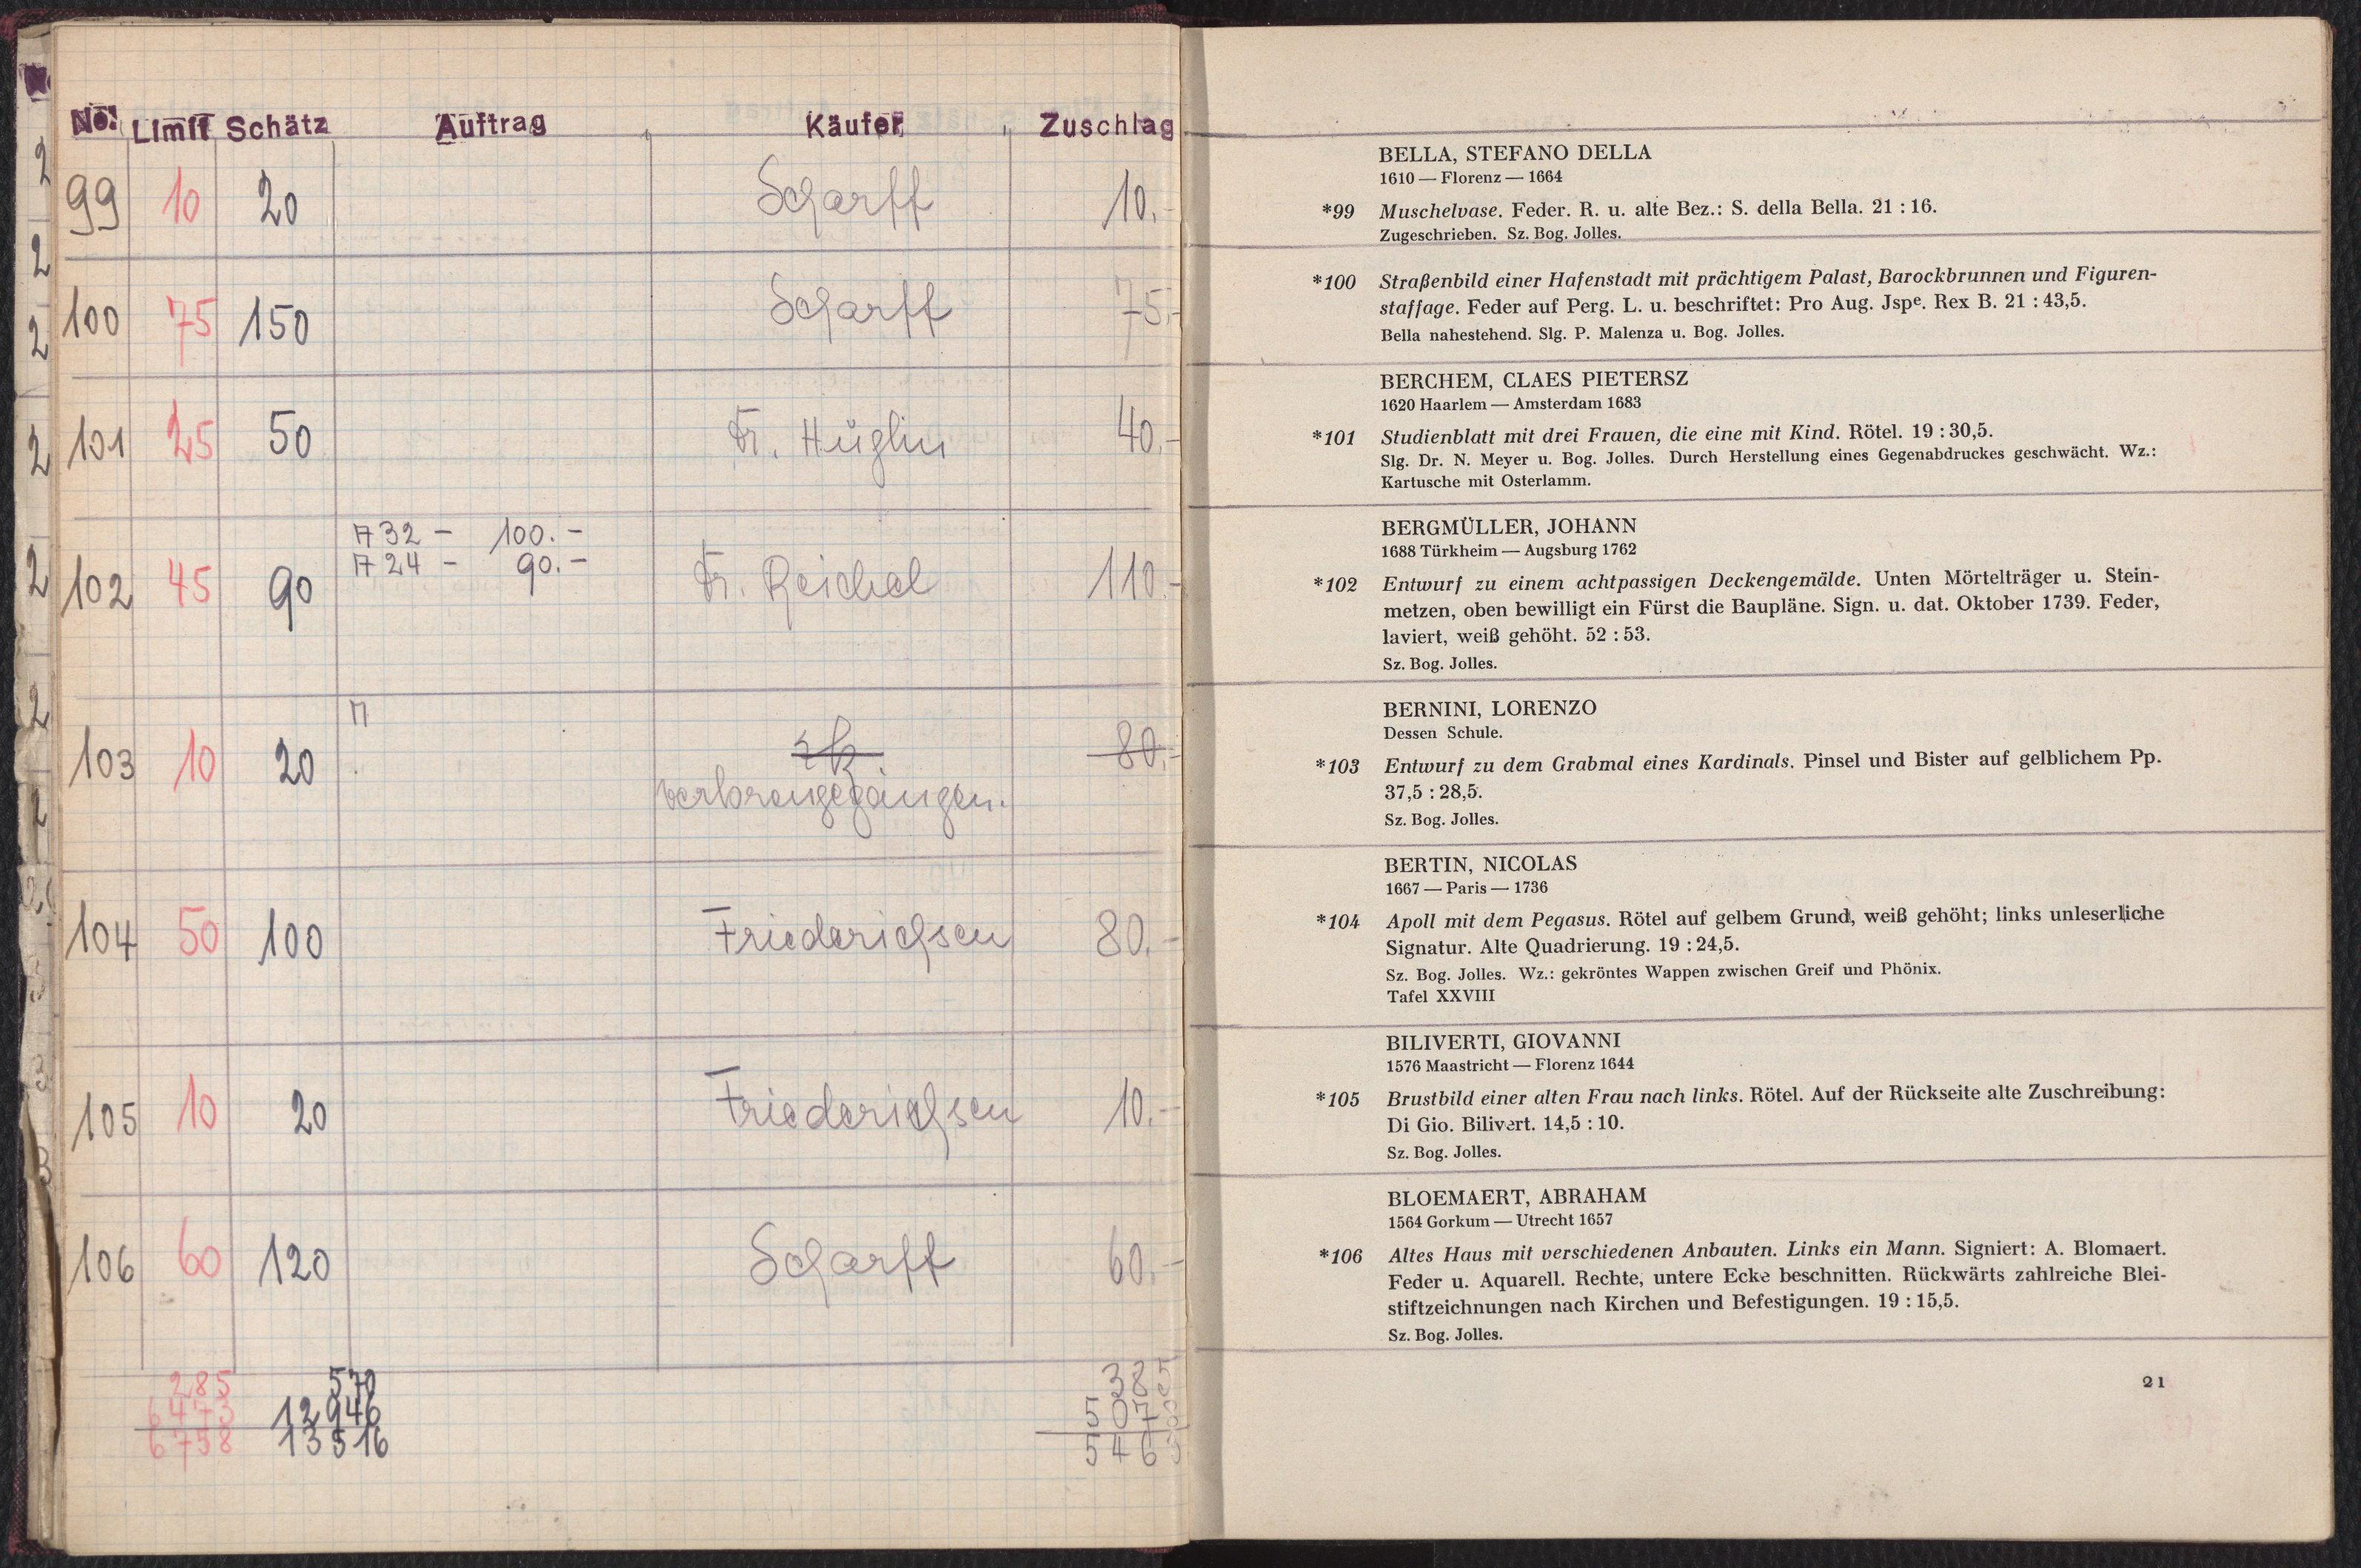 No. Limit Schätz Auftrag Käufer Zuschlag
99 10 20 Scharff 10.-
100 75 150 Scharff 75.-
101 25 50 Dr. Hüglin 40.-
32 - 100.-
24 - 90.-
102 45 90 Dr. Reichel 110.-
103 10 20 80.-
verlorengegangen.
104 50 100 Friederichsen 80.-
105 10 20 Friederichsen 10.-
106 60 120 Scharff 60.-
285 570 385
6473 12946
6758 13516
BELLA, STEFANO DELLA
1610 — Florenz — 1664
*99 Muschelvase. Feder. R. u. alte Bez.: S. della Bella. 21 : 16.
Zugeschrieben. Sz. Bog. Jolles.
*100 Straßenbild einer Hafenstadt mit prächtigem Palast, Barockbrunnen und Figuren-
staffage. Feder auf Perg. L. u. beschriftet: Pro Aug. Jspe. Rex B. 21 : 43,5.
Bella nahestehend. Slg. P. Malenza u. Bog. Jolles.
BERCHEM, CLAES PIETERSZ
1620 Haarlem — Amsterdam 1683
*101 Studienblatt mit drei Frauen, die eine mit Kind. Rötel. 19 : 30,5.
Slg. Dr. N. Meyer u. Bog. Jolles. Durch Herstellung eines Gegenabdruckes geschwächt. Wz.:
Kartusche mit Osterlamm.
BERGMÜLLER, JOHANN
1688 Türkheim — Augsburg 1762
*102 Entwurf zu einem achtpassigen Deckengemälde. Unten Mörtelträger u. Stein-
metzen, oben bewilligt ein Fürst die Baupläne. Sign. u. dat. Oktober 1739. Feder,
laviert, weiß gehöht. 52 : 53.
Sz. Bog. Jolles.
BERNINI, LORENZO
Dessen Schule.
*103 Entwurf zu dem Grabmal eines Kardinals. Pinsel und Bister auf gelblichem Pp.
37,5 : 28,5.
Sz. Bog. Jolles.
BERTIN, NICOLAS
1667 — Paris — 1736
*104 Apoll mit dem Pegasus. Rötel auf gelbem Grund, weiß gehöht; links unleserliche
Signatur. Alte Quadrierung. 19 : 24,5.
Sz. Bog. Jolles. Wz.: gekröntes Wappen zwischen Greif und Phönix.
Tafel XXVIII
BILIVERTI, GIOVANNI
1576 Maastricht — Florenz 1644
*105 Brustbild einer alten Frau nach links. Rötel. Auf der Rückseite alte Zuschreibung:
Di Gio. Bilivert. 14,5 : 10.
Sz. Bog. Jolles.
BLOEMAERT, ABRAHAM
1564 Gorkum — Utrecht 1657
*106 Altes Haus mit verschiedenen Anbauten. Links ein Mann. Signiert: A. Blomaert.
Feder u. Aquarell. Rechte, untere Ecke beschnitten. Rückwärts zahlreiche Blei-
stiftzeichnungen nach Kirchen und Befestigungen. 19 : 15,5.
Sz. Bog. Jolles.
21